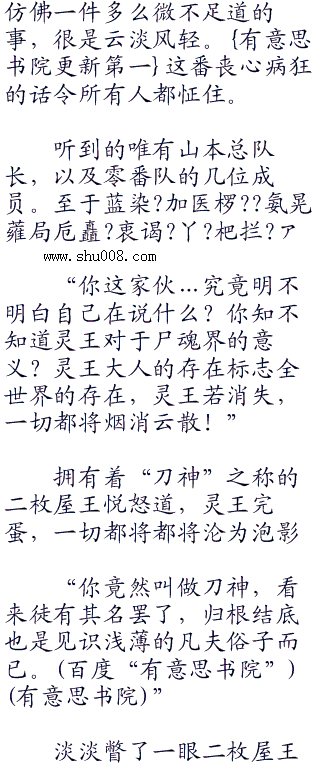 仿佛一件多么微不足道的
事，很是云淡风轻。{有意思
书院更新第一}这番丧心病狂
的话令所有人都怔住。
听到的唯有山本总队
长，以及零番队的几位成
员。至于蓝染?加医椤??氨晃
蕹局卮矗?衷谒?丫?杷拦?ァ
www.shu008.com
“你这家伙...究竟明不
明白自己在说什么？你知不
知道灵王对于尸魂界的意
义？灵王大人的存在标志全
世界的存在，灵王若消失，
一切都将烟消云散！”
拥有着“刀神”之称的
二枚屋王悦怒道，灵王完
蛋，一切都将都将沦为泡影
“你竟然叫做刀神，看
来徒有其名罢了，归根结底
也是见识浅薄的凡夫俗子而
已。(百度“有意思书院”)
(有意思书院)”
淡淡瞥了一眼二枚屋王